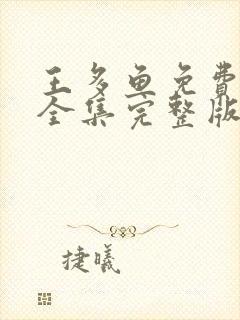 王多鱼免费
全集完整版
捷曦